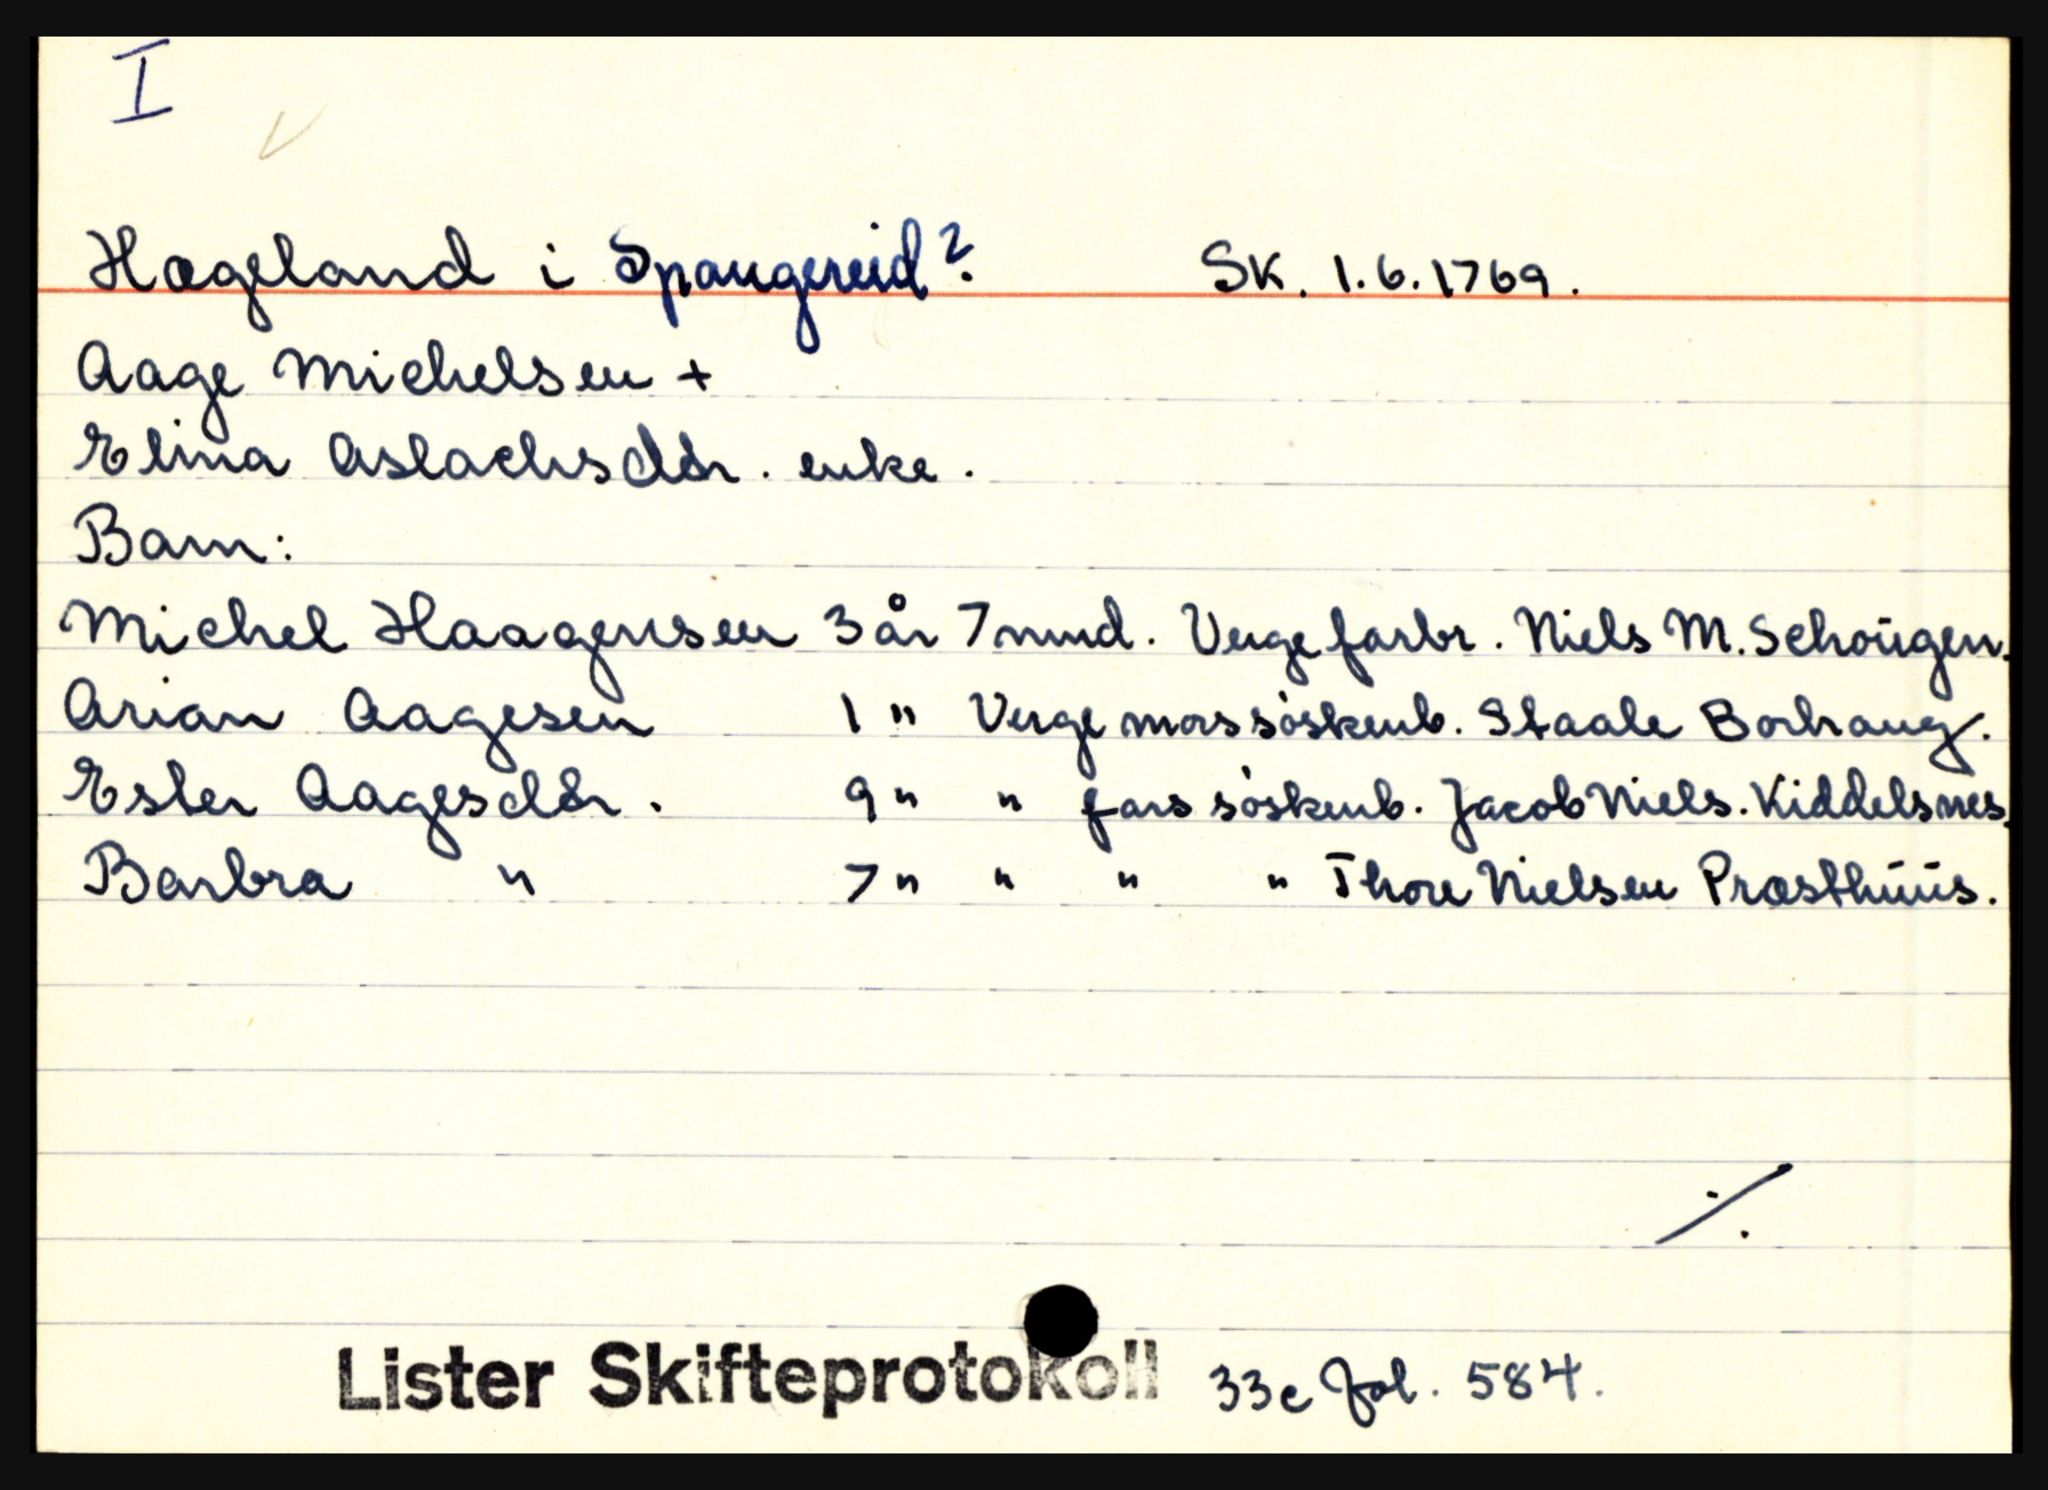 I
Hægeland i Spangereid? Sk. 1.6.1769.
Aage Michelsen +
Elina Aslachsdtr. enke.
Barn:
Michel Haagensen 3 år 7 mnd. Verge farbr. Niels M. Schoügen.
Arian Aagesen 1 " Verge mors søskenb. Staale Borhaug.
Ester Aagesdtr. 9 " " fars søskenb. Jacob Niels. Kiddelsnes.
Barbra " 7 " " " " Thore Nielsen Præsthüüs.
./.
Lister Skifteprotokoll 33c fol. 584.